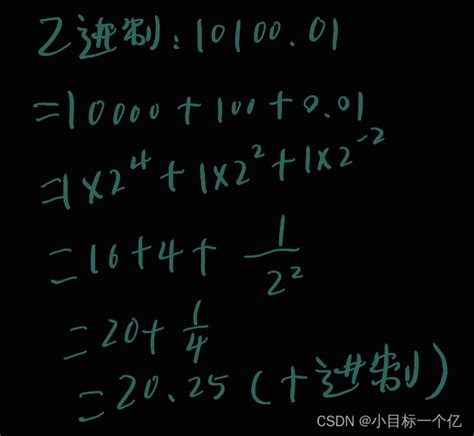 2进制:10100.01
=10000+100+0.01
=1×2⁴+1×2²+1×2⁻²
=16+4+1/2²
=20+1/4
=20.25(十进制)
CSDN @小目标一个亿